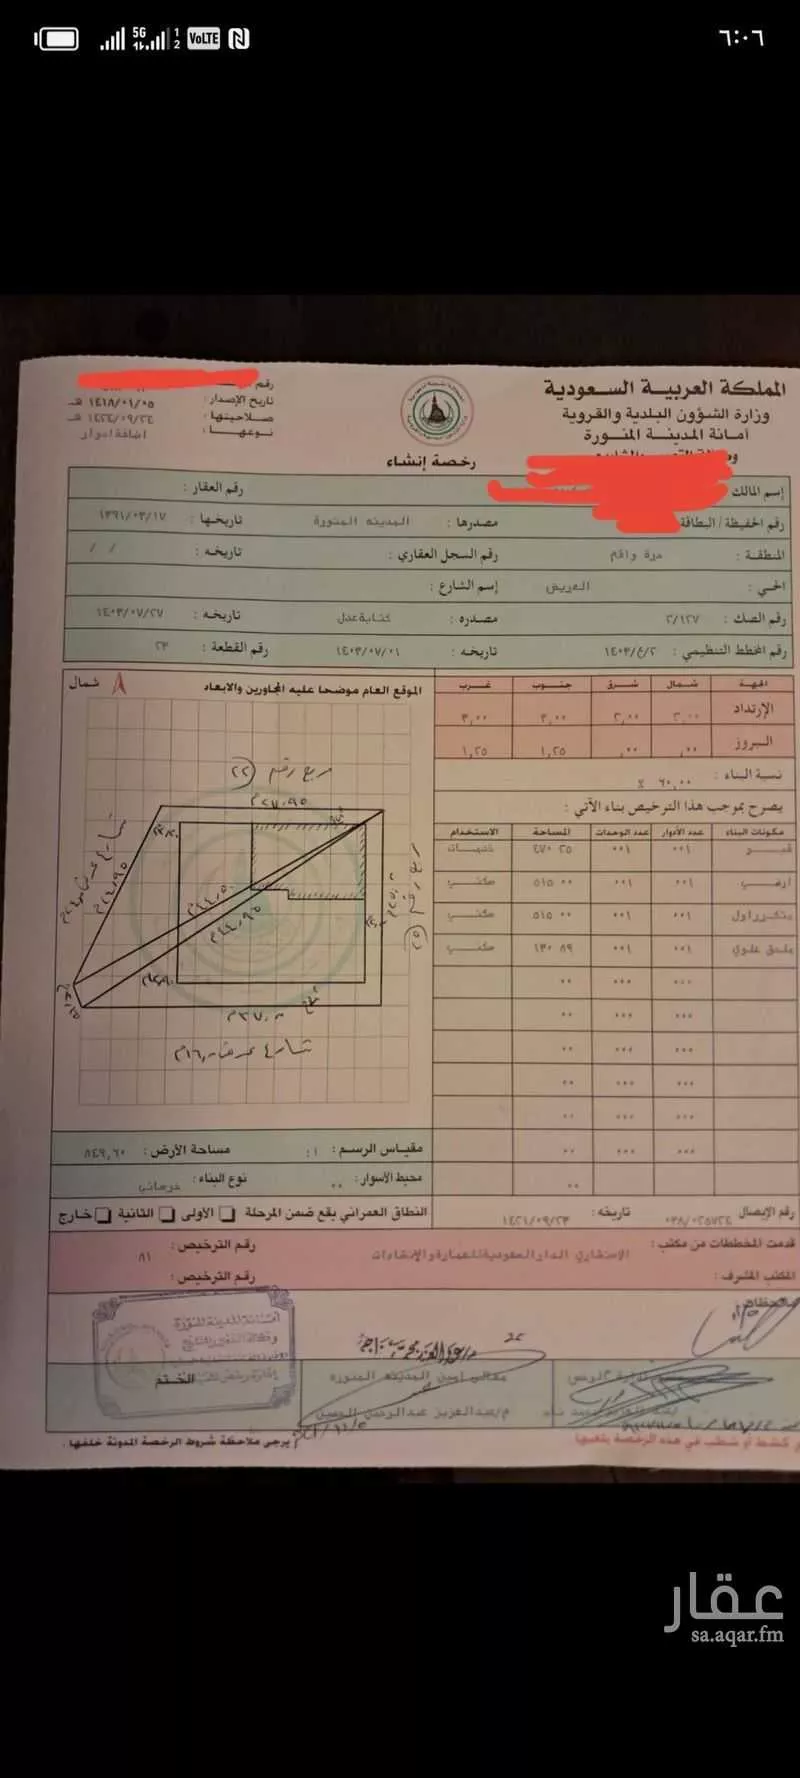 5G
1
2
VoLTE
٦:٠٦
المملكة العربية السعودية
وزارة الشؤون البلدية والقروية
أمانة المدينة المنورة
رقم
تاريخ الإصدار: ١٤١٨/٠١/٠٥ هـ
صلاحيتها: ١٤٢٤/٠٩/٢٤ هـ
نوعها: اضافة ادوار
رخصة إنشاء
إسم المالك
رقم العقار:
رقم الحفيظة / البطاقة
مصدرها: المدينه المنورة
تاريخها: ١٣٩١/٠٣/١٧
المنطقة: حرة واقم
رقم السجل العقاري:
تاريخه: / /
الحي: العريض
إسم الشارع:
رقم الصك: ٢/١٢٧
مصدره: كتابة عدل
تاريخه: ١٤٠٣/٠٧/٢٧
رقم المخطط التنظيمي: ١٤٠٣/٤/٢
تاريخه: ١٤٠٣/٠٧/٠١
رقم القطعة: ٢٣
الجهة شمال شرق جنوب غرب
الإرتداد ٢,٠٠ ٢,٠٠ ٣,٠٠ ٣,٠٠
البروز ,٠٠ ,٠٠ ١,٢٥ ١,٢٥
نسبة البناء: ٦٠,٠٠ ٪
يصرح بموجب هذا الترخيص بناء الآتي:
مكونات البناء عدد الأدوار عدد الوحدات المساحة الاستخدام
قبو ٠٠١ ٠٠١ ٤٧٠ ٢٥ خدمات
ارضي ٠٠١ ٠٠١ ٥١٥ ٠٠ سكني
متكرر اول ٠٠١ ٠٠١ ٥١٥ ٠٠ سكني
ملحق علوي ٠٠١ ٠٠١ ١٣٠ ٨٩ سكني
٠٠٠ ٠٠٠ ٠٠
٠٠٠ ٠٠٠ ٠٠
٠٠٠ ٠٠٠ ٠٠
٠٠٠ ٠٠٠ ٠٠
٠٠٠ ٠٠٠ ٠٠
٠٠٠ ٠٠٠ ٠٠
٠٠
الموقع العام موضحا عليه المجاورين والابعاد
شمال
مربع رقم (٢٢)
٢٧,٩٥م
٢٤,٩٥م
٤٤,٥٠
٤٤,٩٥م
٣٧,٠٠م
شارع عرض ١٦,٠٠م
مقياس الرسم: ١:
مساحة الأرض: ٨٤٩,٦٠
محيط الأسوار: ٠٠
نوع البناء: خرساني
رقم الإيصال ٠٣٨/٠٢٥٧٢٤
تاريخه: ١٤٢١/٠٩/٢٣
النطاق العمراني يقع ضمن المرحلة الأولى الثانية خارج
قدمت المخططات من مكتب: الاستشاري الدار السعودية للعمارة والانشاءات
رقم الترخيص: ٨١
المكتب المشرف:
رقم الترخيص:
أمانة المدينة المنورة
الختم
معالي امين المدينه المنوره
م/عبدالعزيز عبدالرحمن الحصين
كشط أو شطب في هذه الرخصة يلغيها
يرجى ملاحظة شروط الرخصة المدونة خلفها.
عقار
sa.aqar.fm